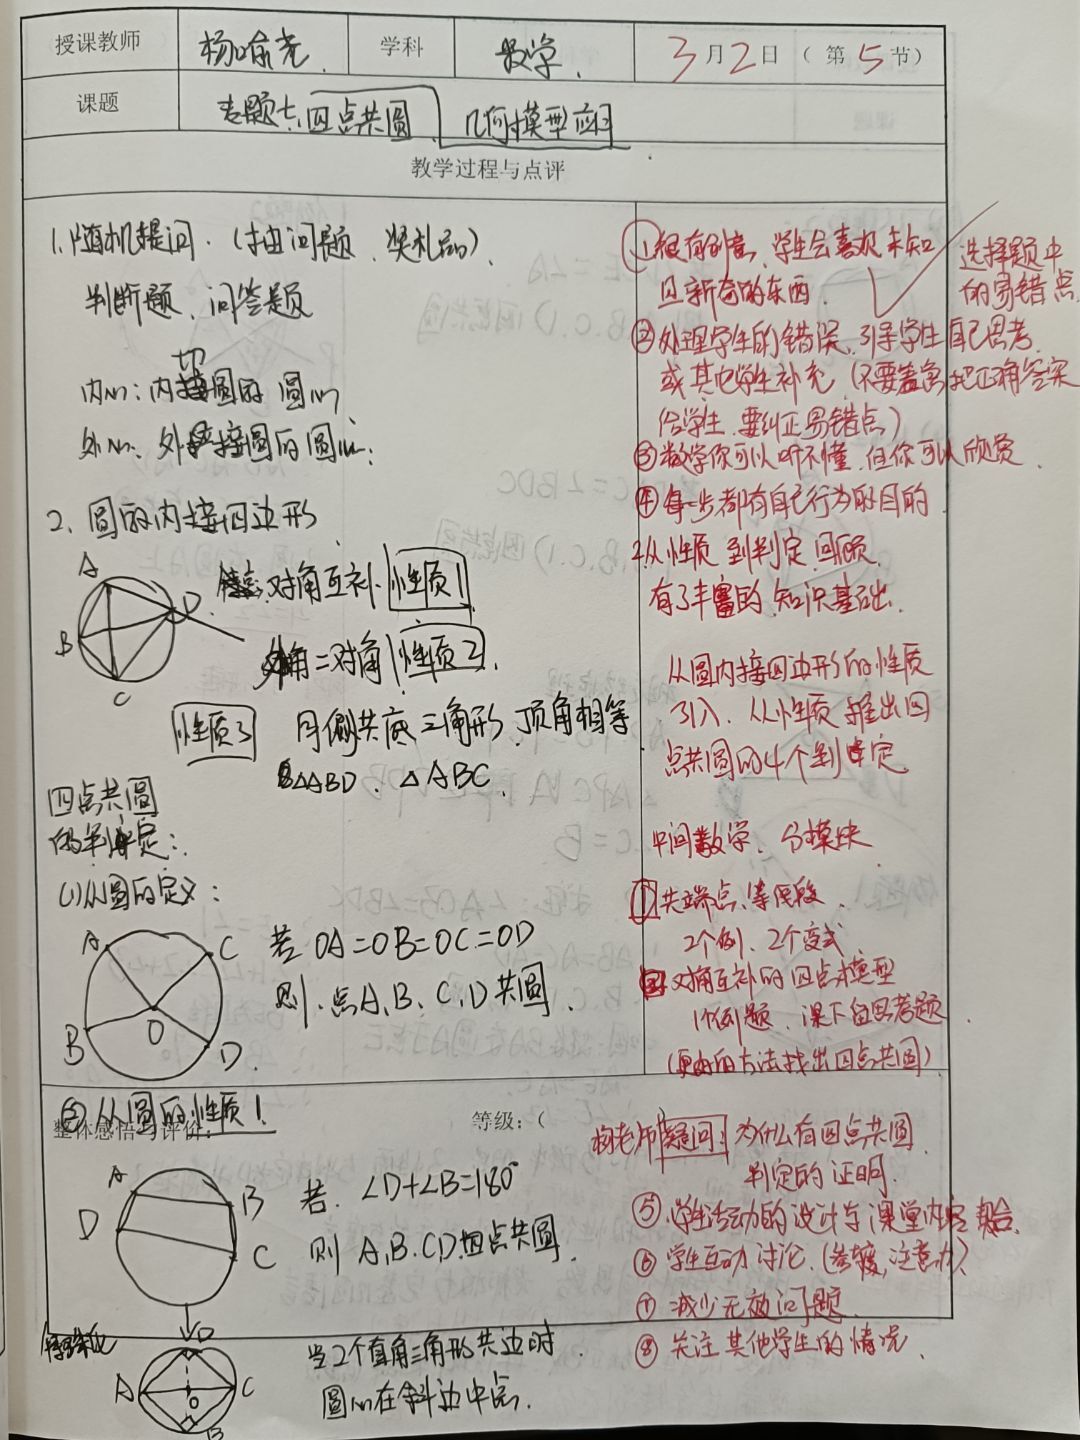 授课教师 杨喻尧 学科 数学 3月2日（第5节）
课题 专题七:四点共圆、几何模型应用
教学过程与点评
1.随机提问.（抽问题、奖礼品）
判断题、问答题
切
内心:内接圆的圆心
外心:外接圆的圆心
2、圆的内接四边形
A
B
C
D
对角互补 性质1
外角=对角 性质2
性质3 同侧共底三角形,顶角相等
△ABD、△ABC
四点共圆
的判定:
(1)从圆的定义:
A
B
C
D
O
若 OA=OB=OC=OD
则.点A、B、C、D共圆
② 从圆的性质1
整体感悟与评价: 等级:（
A
B
C
D
若.∠D+∠B=180°
则 A、B、CD四点共圆
D
A
C
O
B
当2个直角三角形共边时
圆心在斜边中点.
①很有创意,学生会喜欢未知
且新奇的东西.
选择题中
的易错点
②处理学生的错误,引导学生自己思考
或其他学生补充(不要着急把正确答案
给学生、要纠正易错点)
③数学你可以听不懂,但你可以欣赏.
④每一步都有自己行为的目的
2.从性质到判定,回顾.
有了丰富的知识基础.
从圆内接四边形的性质
引入、从性质推出四
点共圆的4个判定
中间数学、分模块
①共端点、等线段、
2个例、2个变式
②对角互补的四点模型
1个例题、课下自思考题
(更好的方法找出四点共圆)
杨老师 疑问:为什么有四点共圆
判定的证明.
⑤.学生活动的设计与课堂内容契合.
⑥ 学生互动讨论.(参与度,注意力)
⑦ 减少无效问题
⑧ 关注其他学生的情况.